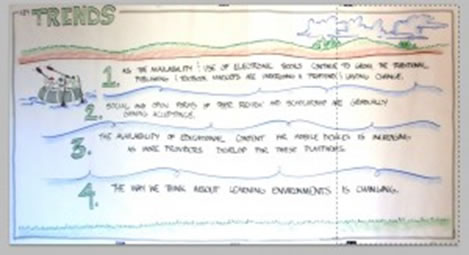 TRENDS
1. AS THE AVAILABILITY & USE OF ELECTRONIC BOOKS CONTINUE TO GROW THE TRADITIONAL
PUBLISHING & TEXTBOOK MARKETS ARE UNDERGOING A PROFOUND & LASTING CHANGE.
2. SOCIAL AND OPEN FORMS OF PEER REVIEW AND SCHOLARSHIP ARE GRADUALLY
GAINING ACCEPTANCE.
3. THE AVAILABILITY OF EDUCATIONAL CONTENT FOR MOBILE DEVICES IS INCREASING
AS MORE PROVIDERS DEVELOP FOR THESE PLATFORMS.
4. THE WAY WE THINK ABOUT LEARNING ENVIRONMENTS IS CHANGING.